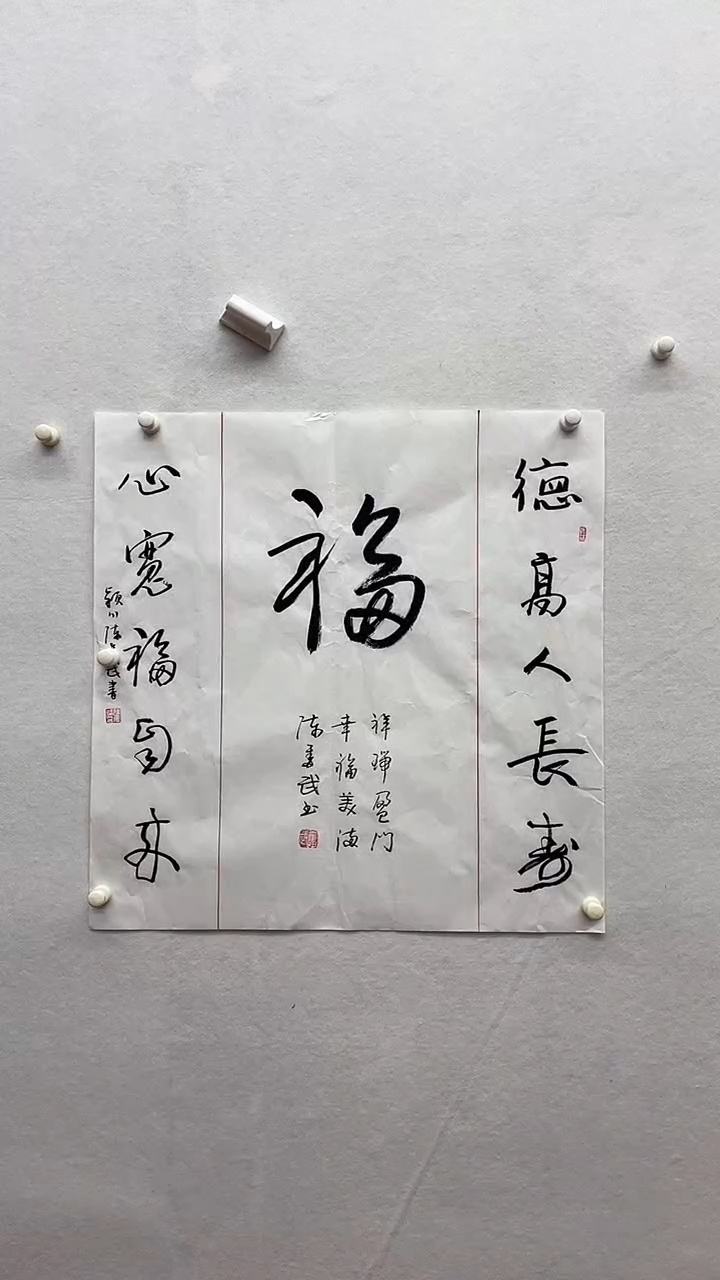 德高人長寿
福
祥瑞盈门
幸福美满
陈武书
心寬福自来
颖川陈武書